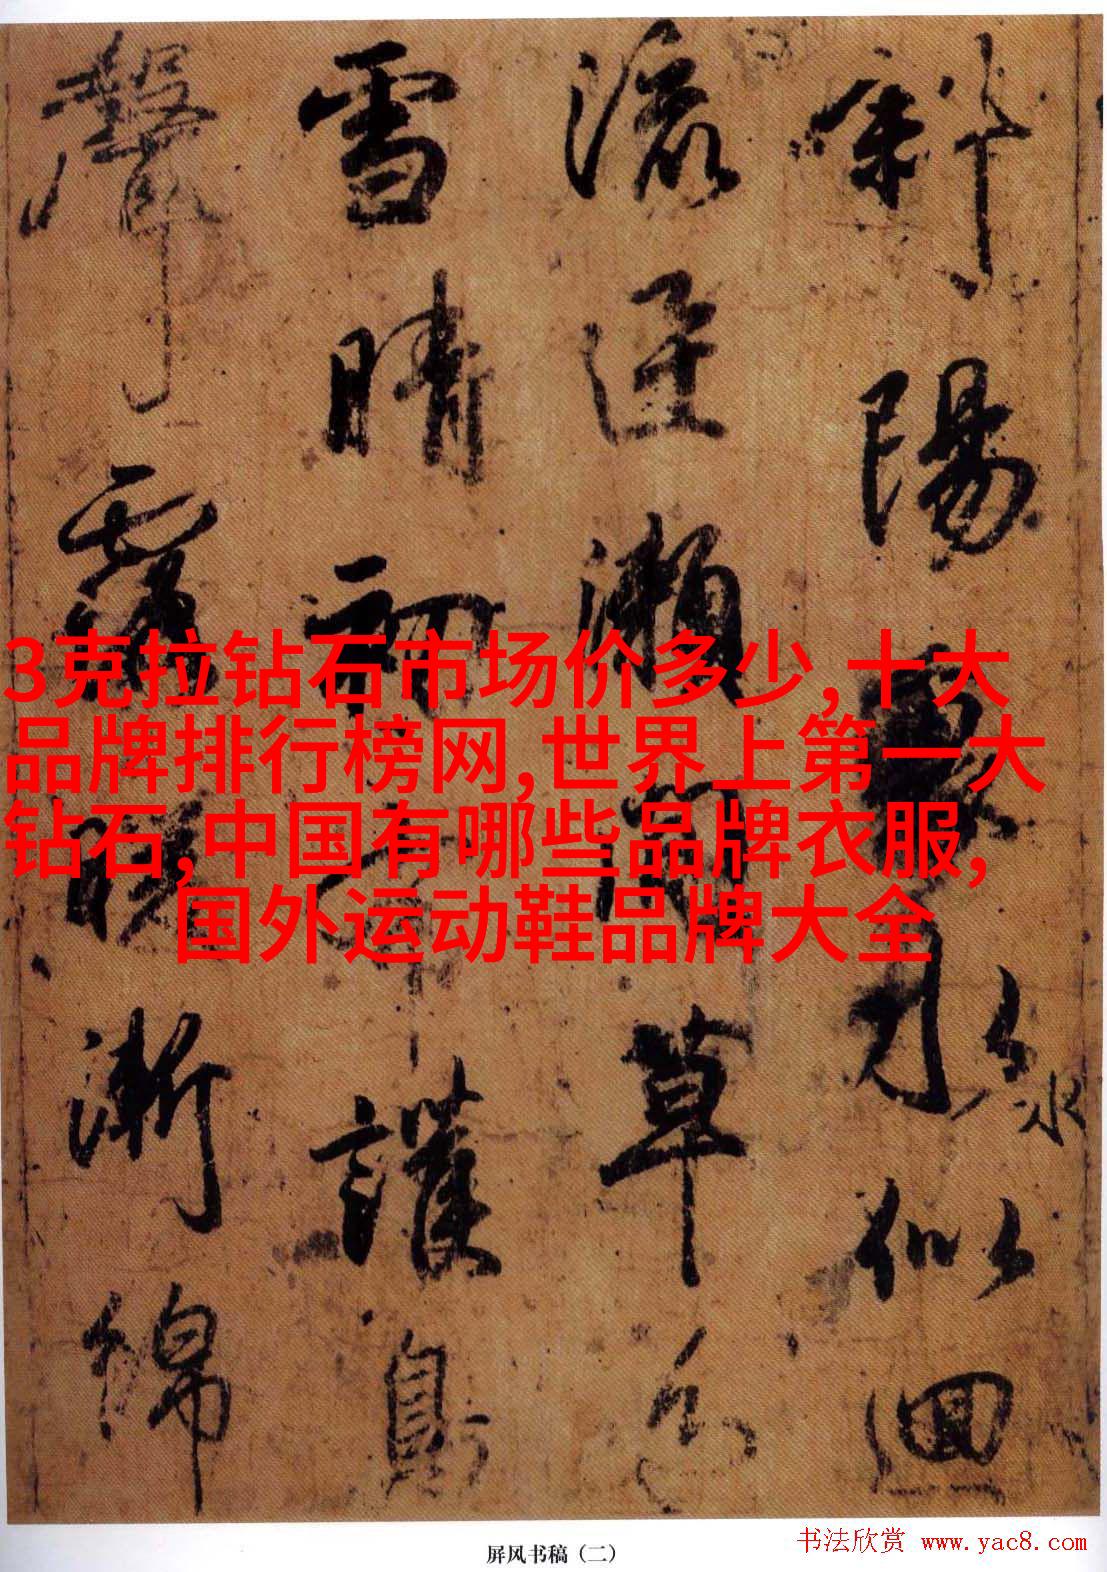 斜陽裏水似洄
流迸瀬間草色
雪晴初布護鳥
聲露暖漸綿
3克拉钻石市场价多少,十大
品牌排行榜网,世界上第一大
钻石,中国有哪些品牌衣服,
国外运动鞋品牌大全
屏风书稿（二）
书法欣赏 www.yac8.com